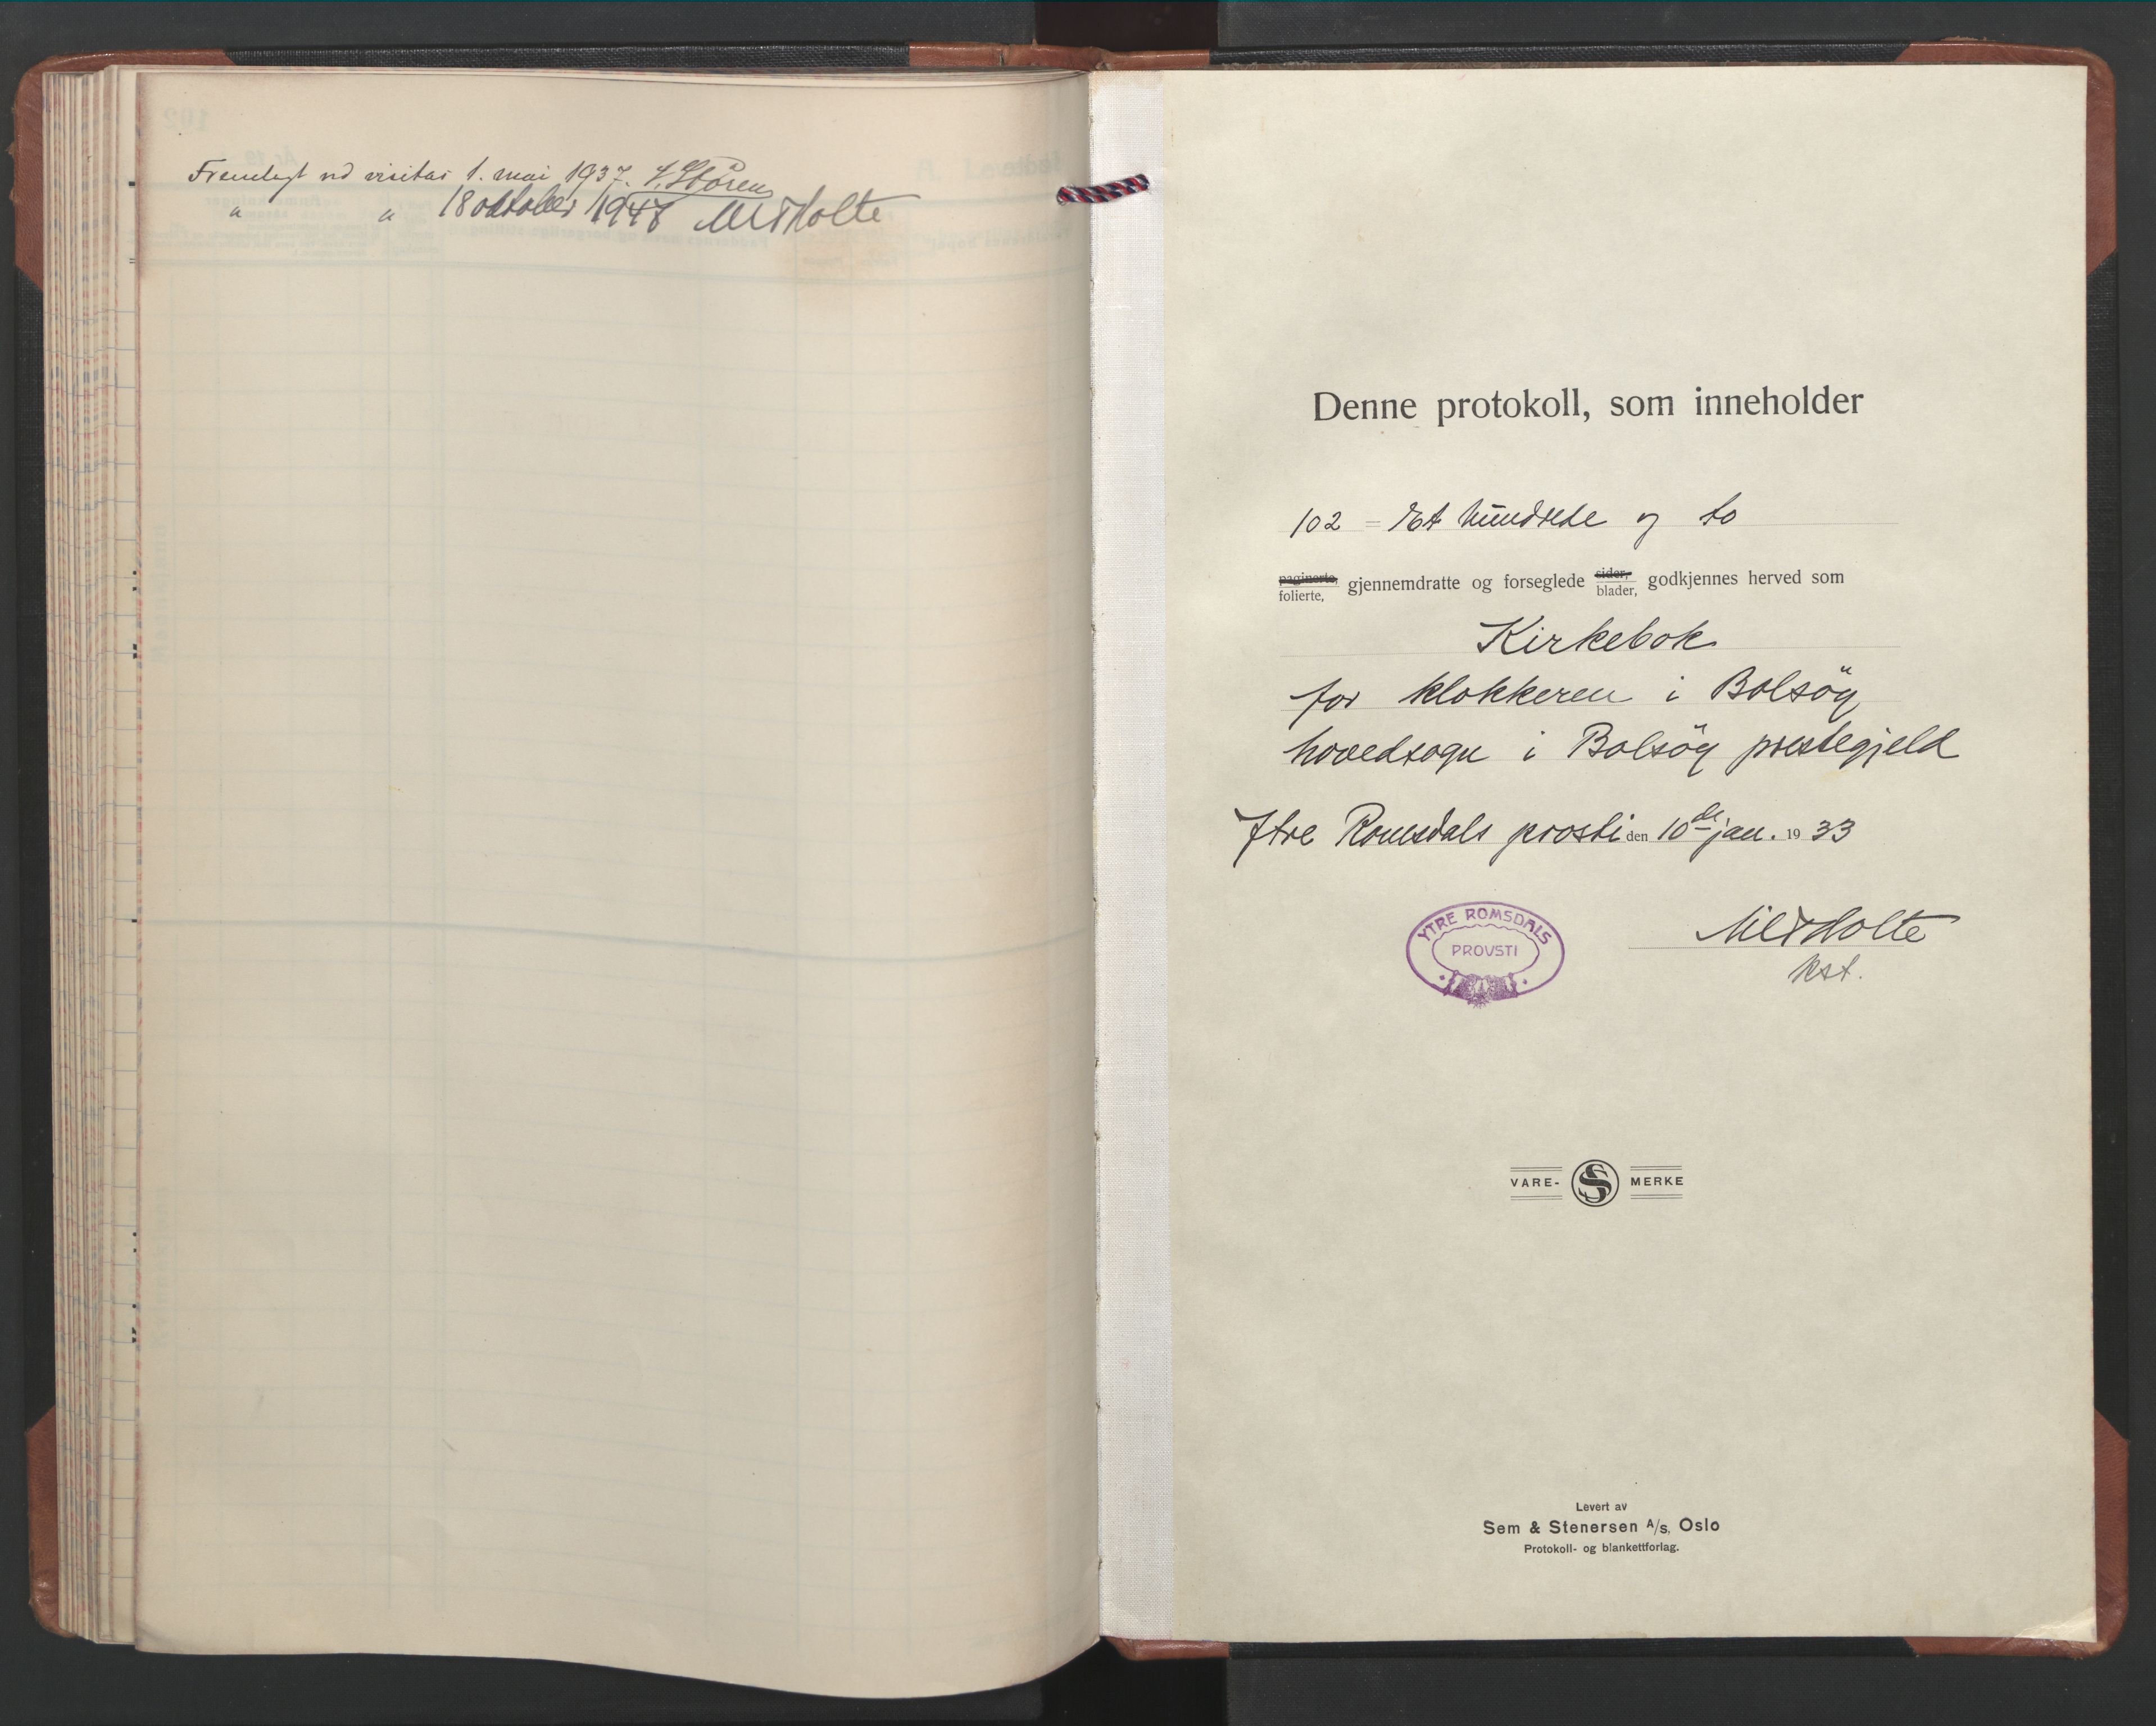 Fremlagt ved visitas 1. mai 1937. Støren
" " 18 oktober 1947 Holte
Denne protokoll, som inneholder
102 = Et hundrede og to
paginerte, folierte, gjennemdratte og forseglede sider, blader, godkjennes herved som
Kirkebok
for klokkeren i Bolsöy
hovedsogn i Bolsöy prestegjeld
Ytre Romsdals prosti den 10de jan. 1933
Holte
kst.
YTRE ROMSDALS
PROVSTI
VARE- S MERKE
Levert av
Sem & Stenersen A/s, Oslo
Protokoll- og blankettforlag.